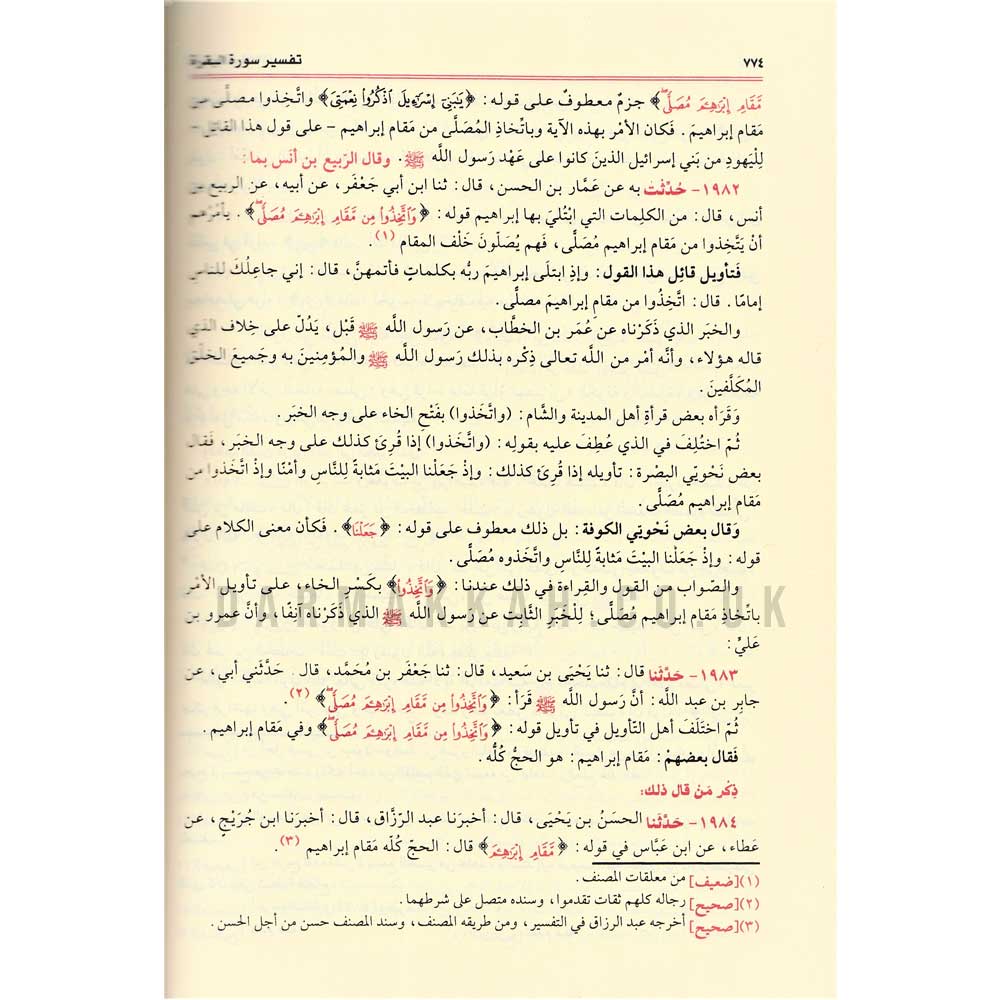 ٧٧٤ تفسير سورة البقرة
مَّقَامِ إِبْرَٰهِـۧمَ مُصَلًّى﴾ جزمٌ معطوفٌ على قوله: ﴿يَٰبَنِىٓ إِسْرَٰٓءِيلَ ٱذْكُرُوا۟ نِعْمَتِىَ﴾ واتَّخِذوا مصلًّى من
مَقام إبراهيمَ. فكان الأمْر بهذه الآية وباتِّخاذِ المُصَلَّى من مَقام إبراهيم - على قول هذا القائل -
لِلْيَهودِ من بَني إسرائيل الذينَ كانوا على عَهْد رَسول الله ﷺ. وقال الرّبيع بن أنس بما:
١٩٨٢- حُدِّثْت به عن عَمَّار بن الحسن، قال: ثنا ابن أبي جَعْفَر، عن أبيه، عن الربيع بن
أنس، قال: من الكلِمات التي ابْتُليَ بها إبراهيم قوله: ﴿وَٱتَّخِذُوا۟ مِن مَّقَامِ إِبْرَٰهِـۧمَ مُصَلًّى﴾. يأمُرُهم
أنْ يَتَّخِذوا من مَقام إبراهيم مُصَلَّى، فَهم يُصَلّونَ خَلْف المقام (١).
فَتأويل قائل هذا القول: وإذِ ابتلَى إبراهيمَ ربُّه بكلماتٍ فأتمهنَّ، قال: إني جاعِلُكَ للناس
إمامًا. قال: اتَّخِذُوا من مقامِ إبراهيمَ مصلَّى.
والخبَر الذي ذَكَرْناه عن عُمَر بن الخطَّاب، عن رَسول الله ﷺ قَبْل، يَدُلّ على خِلاف الذي
قاله هؤلاء، وأنَّه أمْر من الله تعالى ذِكْره بذلك رَسول الله ﷺ والمُؤمِنينَ به وجَميعَ الخلْق
المُكَلَّفينَ.
وَقَرَأه بعض قرأةِ أهل المدينة والشَّام: (واتَّخَذوا) بفَتْحِ الخاء على وجه الخبَر.
ثُمّ اختُلِفَ في الذي عُطِفَ عليه بقوله: (واتَّخَذوا) إذا قُرِئَ كذلك على وجه الخبَر، فَقال
بعض نَحْويّي البصْرة: تأويله إذا قُرِئَ كذلك: وإذْ جَعَلْنا البيْتَ مَثابةً لِلنَّاسِ وأمْنًا وإذْ اتَّخَذوا من
مَقام إبراهيم مُصَلَّى.
وَقال بعض نَحْويّي الكوفة: بل ذلك معطوف على قوله: ﴿جَعَلْنَا﴾. فكأن معنى الكلام على
قوله: وإذْ جَعَلْنا البيْتَ مَثابةً لِلنَّاسِ واتَّخَذوه مُصَلَّى.
والصّواب من القول والقِراءةِ في ذلك عندنا: ﴿وَٱتَّخِذُوا۟﴾ بكَسْرِ الخاء، على تأويل الأمْرِ
باتِّخاذِ مَقام إبراهيم مُصلَّى؛ لِلْخَبَرِ الثَّابِت عن رَسول الله ﷺ الذي ذَكَرْناه آنِفًا، وأنَّ عمرو بن
عَليٍّ:
١٩٨٣- حَدَّثَنا قال: ثنا يَحْيَى بن سَعيد، قال: ثنا جَعْفَر بن مُحَمَّد، قال: حَدَّثَني أبي، عن
جابِر بن عبد الله: أنَّ رَسول الله ﷺ قَرَأ: ﴿وَٱتَّخِذُوا۟ مِن مَّقَامِ إِبْرَٰهِـۧمَ مُصَلًّى﴾ (٢).
ثُمّ اختَلَفَ أهل التّأويل في تأويل قوله: ﴿وَٱتَّخِذُوا۟ مِن مَّقَامِ إِبْرَٰهِـۧمَ مُصَلًّى﴾ وفي مَقام إبراهيم.
فَقال بعضهمْ: مَقام إبراهيم: هو الحجُّ كُلُّه.
ذِكْر مَن قال ذلك:
١٩٨٤- حَدَّثَنا الحسَنُ بن يَحْيَى، قال: أخبرَنا عبد الرزَّاق، قال: أخبرَنا ابن جُرَيْجٍ، عن
عَطاء، عن ابن عَبَّاس في قوله: ﴿مَّقَامِ إِبْرَٰهِـۧمَ﴾ قال: الحجّ كلّه مَقام إبراهيم (٣).
(١)[ضعيف] من معلقات المصنف.
(٢)[صحيح] رجاله كلهم ثقات تقدموا، وسنده متصل على شرطهما.
(٣)[صحيح] أخرجه عبد الرزاق في التفسير، ومن طريقه المصنف، وسند المصنف حسن من أجل الحسن.
DARMAKKAH.CO.UK